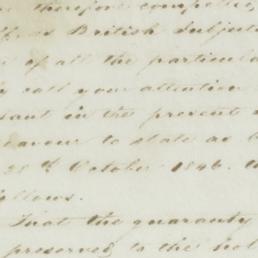 therefore
as British Subjects
of all the particula
call your attention
in the present
eavour to state as
28th October 1846.
follows.
That the guaranty
preserved to the hol